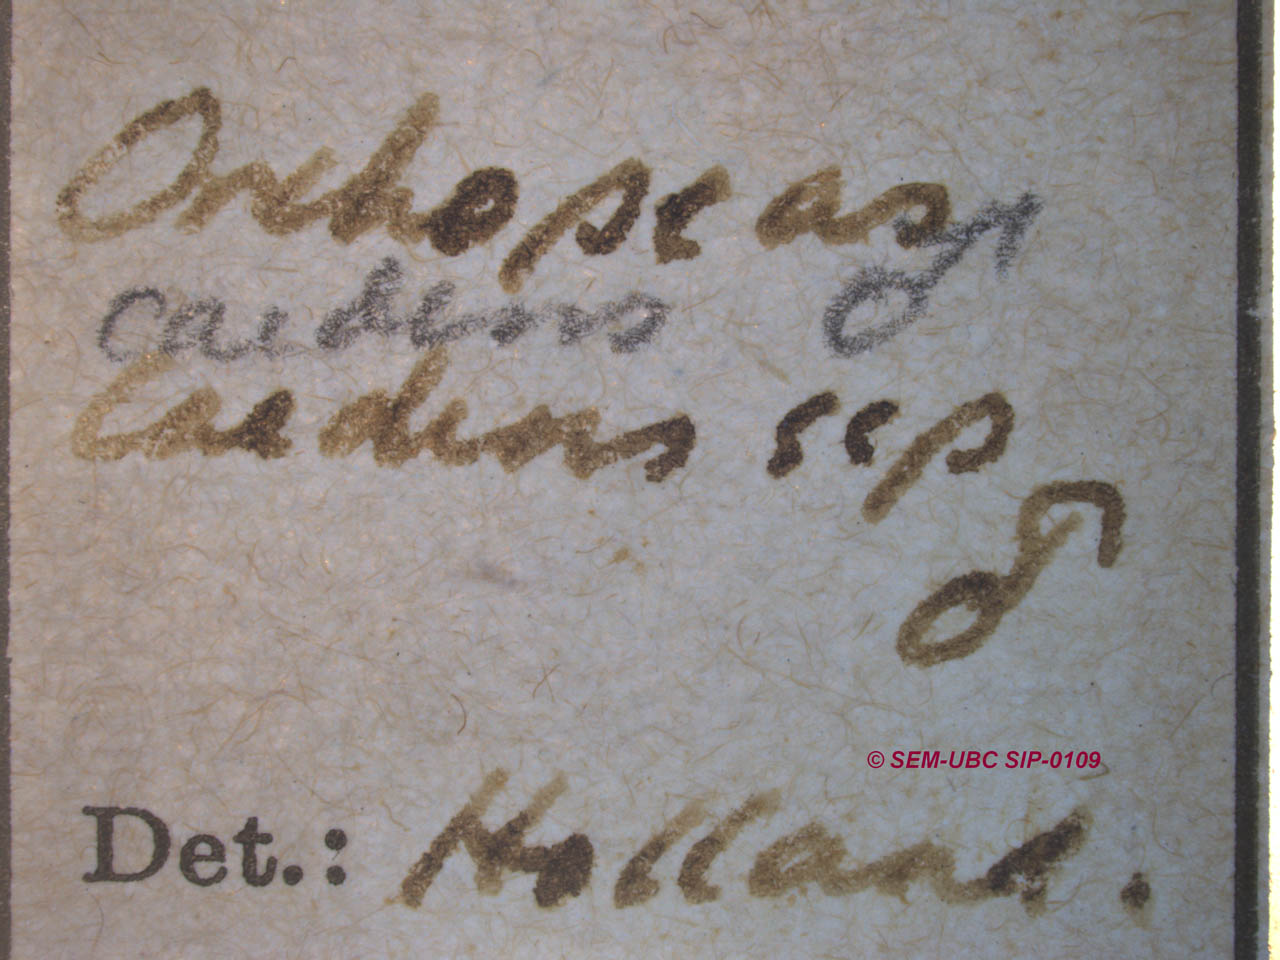 Orchopeas
caedens ♂
caedens ssp
♂
© SEM-UBC SIP-0109
Det.: Holland.